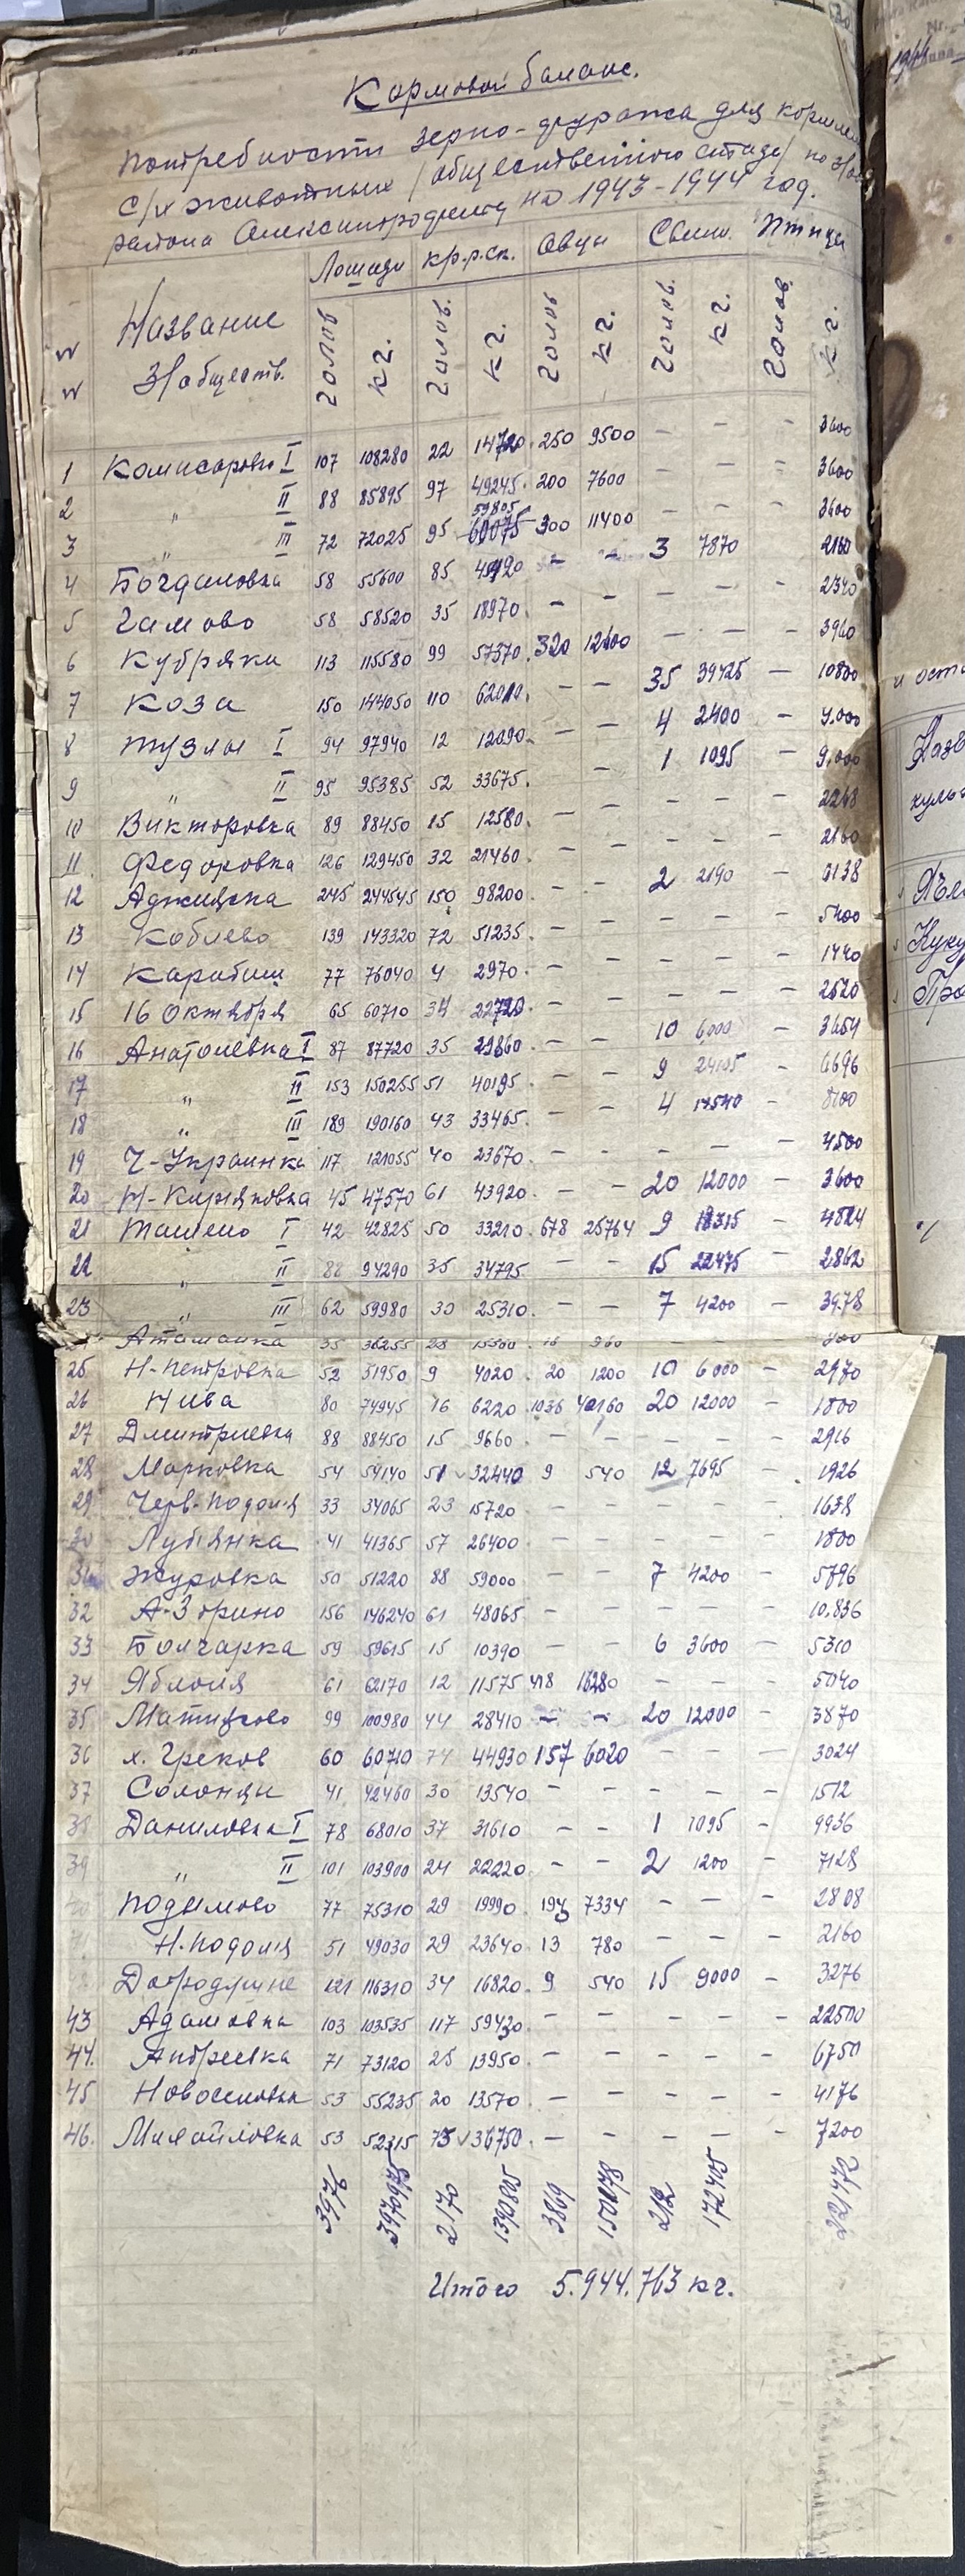 Кормовой баланс.
потребности зерно-фуража для кормлен
с/х животных /общественного стада/ по з/об
района Александродмени на 1943-1944 год.
Лошади кр.р.ск. Овцы Свиньи Птица
NN Название з/обществ. голов кг. голов. кг. голов кг. голов. кг. голов. кг.
1 Комисаровка I 107 108280 22 14720 250 9500 — — — 3600
2 " II 88 85895 97 49245 200 7600 — — — 3600
59805
3 " III 72 72025 95 60075 300 11400 — — — 3600
4 Богдановка 58 55600 85 — — 3 7870 2160
5 Чамово 58 58520 35 18970 — — — — — 2340
6 Кубряки 113 115580 99 57370 320 — — — 3960
7 Коза 150 144050 110 — — 35 39425 — 10800
8 Тузлы I 94 97940 12 12090 — — 4 2400 — 9.000
9 " II 95 95385 52 33675 — 1 1095 — 9.000
10 Викторовка 89 88450 15 12580 — — — — — 2268
11 Федоровка 126 129450 32 21460 — — — — — 2160
12 Аджияска 245 244545 150 98200 — — 2 2190 — 6138
13 Коблево 139 143320 72 51235 — — — — — 5400
14 Карабаш 77 76040 4 2970 — — — — — 1440
15 16 Октября 65 60710 34 22720 — — — — — 2520
16 Анатолевка I 87 87720 35 29860 — — 10 6000 — 3654
17 " II 153 150255 51 40195 — — 9 24105 — 6696
18 " III 189 190160 43 33465 — — 4 — 8100
19 Ч-Украинка 117 121055 40 23670 — — — — — 4500
20 Н-Киряковка 45 47570 61 43920 — — 20 12000 — 3600
21 Ташено I 42 42825 50 33210 678 25764 9 — 4824
22 " II 88 94290 35 34795 — — 15 22475 — 2862
23 " III 62 59980 30 25310 — — 7 4200 — 3978
Атаманка 35 36255 28 15300 16 960 — —
25 Н-Петровка 52 51950 9 4020 20 1200 10 6000 — 2970
26 Нива 80 74945 16 6220 1036 40160 20 12000 — 1800
27 Дмитриевка 88 88450 15 9660 — — — — — 2916
28 Марковка 54 54140 51 32440 9 540 12 7695 — 1926
29 Черв-Подолия 33 34065 23 15720 — — — — — 1638
30 Лубянка 41 41365 57 26400 — — — — — 1800
31 Журовка 50 51220 88 59000 — — 7 4200 — 5796
32 А-Зорино 156 146240 61 48065 — — — — — 10.836
33 Болгарка 59 59615 15 10390 — — 6 3600 — 5310
34 Яблоня 61 62170 12 11575 418 16280 — — — 5040
35 Матиясово 99 100980 44 28410 — — 20 12000 — 3870
36 х. Греков 60 60710 74 44930 157 6020 — — — 3024
37 Солонцы 41 42460 30 13540 — — — — — 1512
38 Даниловка I 78 68010 37 31610 — — 1 1095 — 9936
39 " II 101 103900 24 22220 — — 2 1200 — 7128
40 Подымово 77 75310 29 19990 193 7334 — — — 2808
41 Н.Подолия 51 49030 29 23640 13 780 — — — 2160
Добродушне 121 116310 34 16820 9 540 15 9000 — 3276
43 Адамовка 103 103535 117 59430 — — — — — 22500
44. Андреевка 71 73120 25 13950 — — — — — 6750
45 Новоселовка 53 55235 20 13570 — — — — — 4176
46. Михайловка 53 52315 75 36750 — — — — — 7200
3976 3970975 2170 3869 212 172405 221472
Итого 5.944.763 кг.